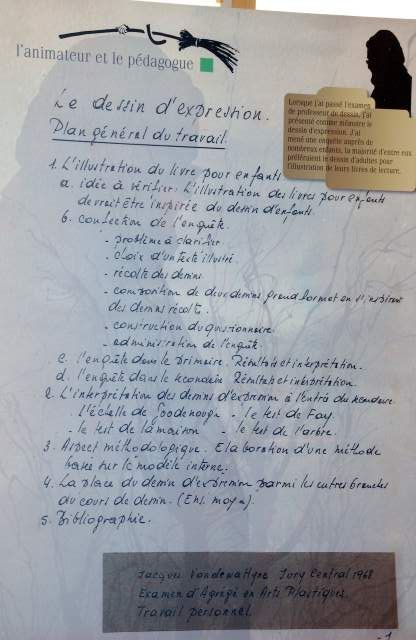 l'animateur et le pédagogue
Lorsque j'ai passé l'examen
de professeur de dessin, j'ai
présenté comme mémoire le
dessin d'expression. J'ai
mené une enquête auprès de
nombreux enfants, la majorité d'entre eux
préféraient le dessin d'adultes pour
l'illustration de leurs livres de lecture.
Le dessin d'expression.
Plan général du travail.
1. L'illustration du livre pour enfants.
a. idée à vérifier: L'illustration des livres pour enfants
devrait être inspirée du dessin d'enfants.
b. confection de l'enquête.
- problème à clarifier.
- choix d'un texte illustré.
- récolte des dessins.
- composition de deux dessins grand format en s'inspirant
des dessins récolt.
- construction du questionnaire.
- administration de l'enquête.
c. l'enquête dans le primaire. Résultats et interprétation.
d. l'enquête dans le secondaire Résultats et interprétation.
2. L'interprétation des dessins d'expression à l'entrée du secondaire.
- l'échelle de Goodenough - le test de Fay.
- le test de la maison - le test de l'arbre.
3. Aspect méthodologique. Elaboration d'une méthode
basée sur le modèle interne.
4. La place du dessin d'expression parmi les autres branches
du cours de dessin. (Ens. moyen).
5. Bibliographie.
Jacques Vandewattyne Jury Central 1968
Examen d'Agrégé en Arts Plastiques.
Travail personnel
- 1